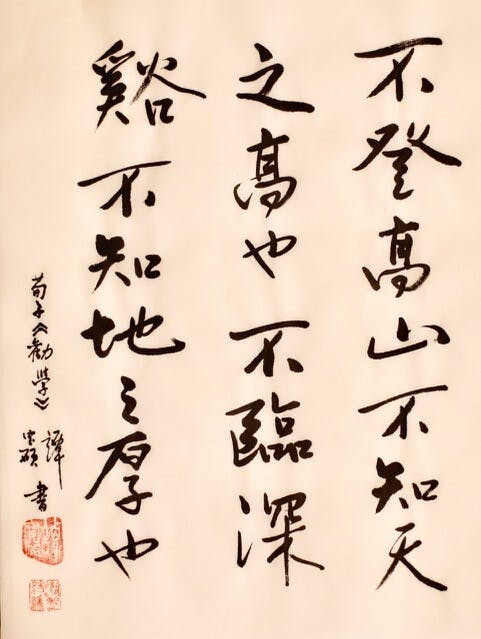 不登高山不知天
之高也不臨深
谿不知地之厚也
荀子《勸學》
譚忠碩書